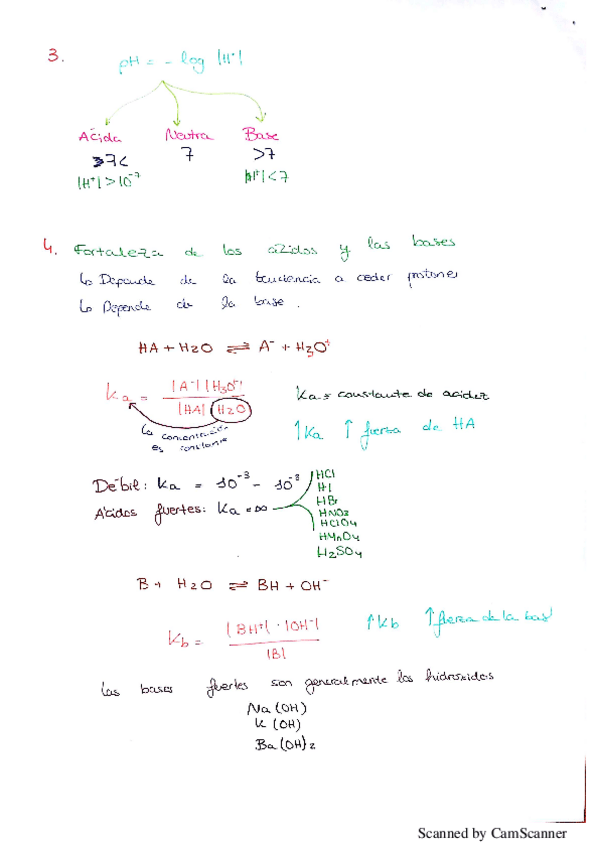 3. pH = - log |H⁺|
Ácida Neutra Base
7< 7 >7
|H⁺| > 10⁻⁷ |H⁺| < 7
4. Fortaleza de los ácidos y las bases
↳ Depende de la tendencia a ceder protones
↳ Depende de la base.
HA + H2O ⇌ A⁻ + H3O⁺
Ka = |A⁻| |H3O⁺| / |HA| |H2O|
Ka = constante de acidez
La concentración es constante
↑Ka ↑ fuerza de HA
Débil: Ka = 10⁻³ - 10⁻⁸
Ácidos fuertes: Ka = ∞
HCl
HI
HBr
HNO2
HClO4
HMnO4
H2SO4
B + H2O ⇌ BH + OH⁻
Kb = |BH⁺| · |OH⁻| / |B|
↑Kb ↑fuerza de la base
Las bases fuertes son generalmente los hidroxidos
Na(OH)
K(OH)
Ba(OH)2
Scanned by CamScanner